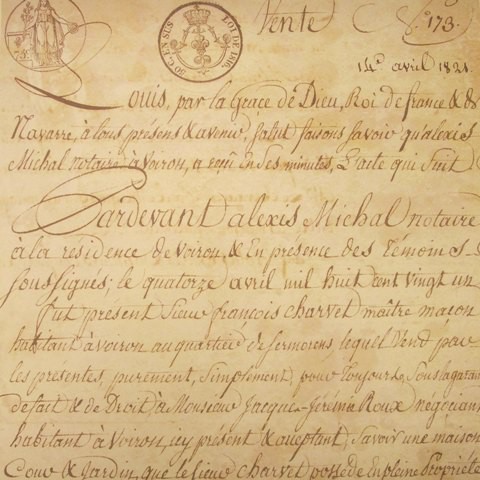 Vente
N.° 173.
50 C. EN SUS
LOI DE 1816
14 avril 1821.
Louis, par la Grace de Dieu, Roi de france & de
Navarre, à tous présens & avenir, salut faisons savoir qu'alexis
Michal notaire à Voiron, a reçu en ses minutes, L'acte qui suit
Pardevant alexis Michal notaire
à la residence de voiron, & En présence des Témoins
soussignés; le quatorze avril mil huit cent vingt un
fut présent sieur françois charvet maître maçon
habitant à voiron au quartier de sermorens lequel vend par
les présentes, purement, simplement, pour toujours, sous la garan
de fait & de Droit à Monsieur Jacques-Jérémie Roux négociant
habitant à Voiron, icy présent & acceptant, savoir une maison
Cour & Jardin, que le sieur charvet possède En pleine Propriété